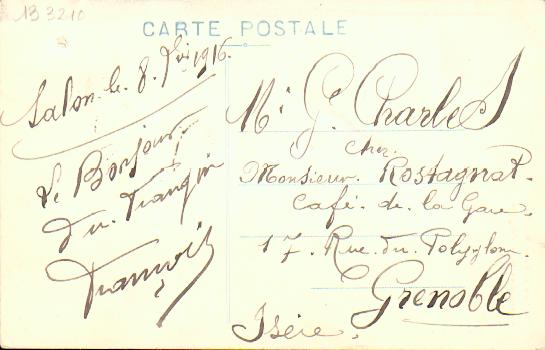 13 3210
CARTE POSTALE
Salon le 8 1916.
Le Bonjour
du
Mr G. Charles
chez
Monsieur Rostagnat.
Café de la Gare.
17. Rue du Polygone.
Grenoble
Isère.